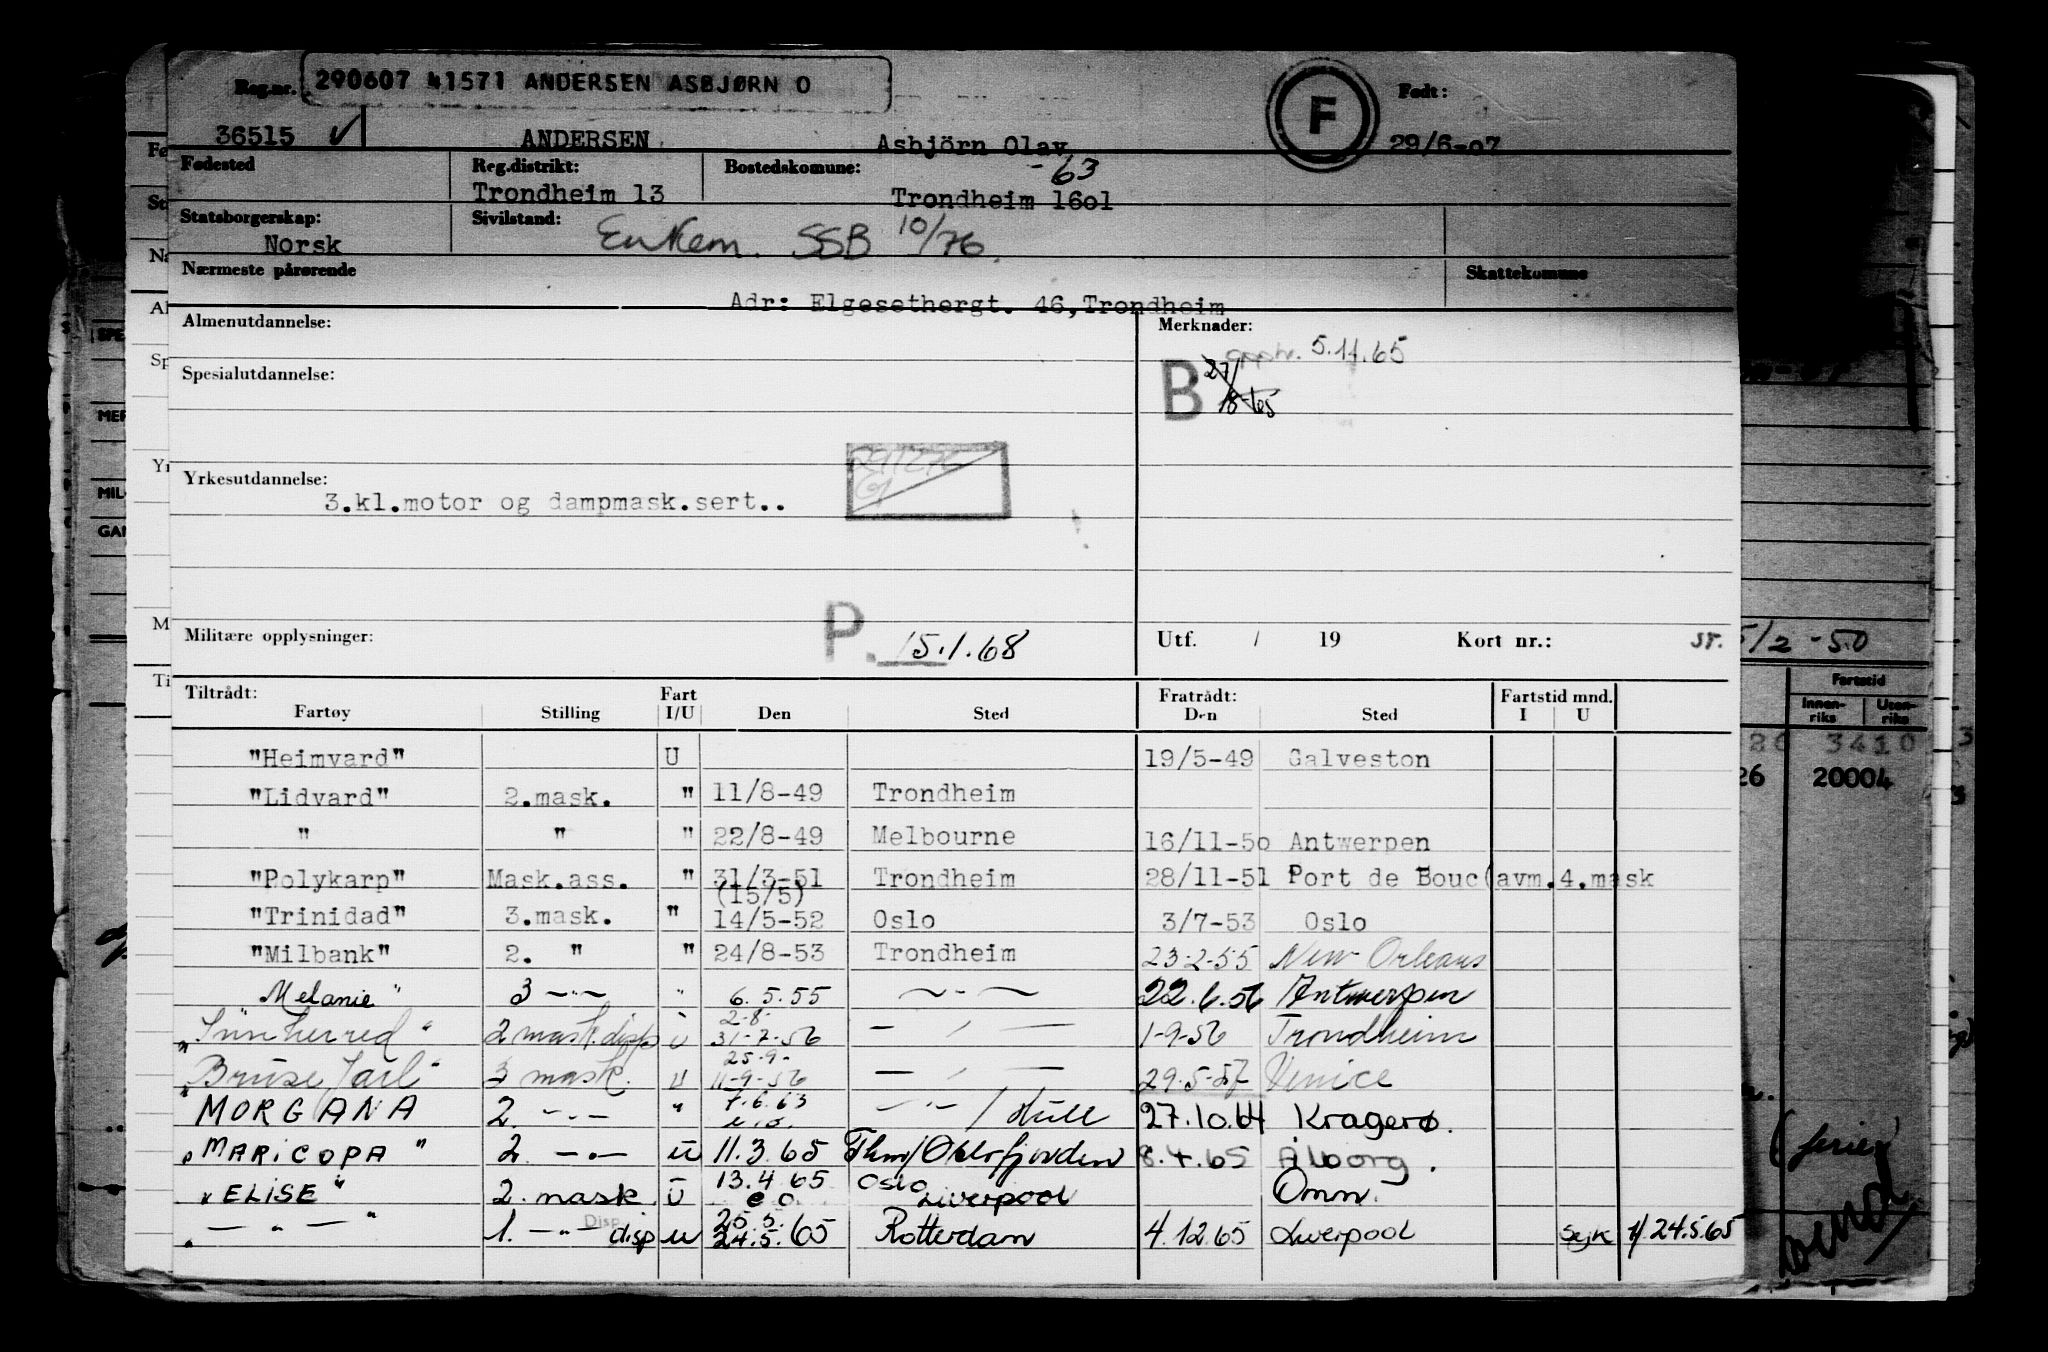 Reg.nr. 290607 41571 ANDERSEN ASBJØRN O
F
Født:
36515 ANDERSEN Asbjörn Olav 29/6-07
Fødested Reg.distrikt: Bostedskomune: -63
Trondheim 13 Trondheim 16o1
Statsborgerskap: Sivilstand: Enkem. SSB 10/76.
Norsk
Nærmeste pårørende Skattekomune
Adr: Elgesethergt. 46,Trondheim
Almenutdannelse: Merknader:
5.11.65
B 27/8-65
Spesialutdannelse:
Yrkesutdannelse:
3.kl.motor og dampmask.sert..
Militære opplysninger: P. 15.1.68 Utf. / 19 Kort nr.: 5/2 -50
Tiltrådt: Fart Fratrådt: Fartstid mnd.
Fartøy Stilling I/U Den Sted Den Sted I U
Fartstid
Innen-riks Uten-riks
"Heimvard" U 19/5-49 Galveston 3410
"Lidvard" 2.mask. " 11/8-49 Trondheim 26 20004
" " " 22/8-49 Melbourne 16/11-5o Antwerpen
"Polykarp" Mask.ass. " 31/3-51 Trondheim 28/11-51 Port de Bouc(avm.4.mask
(15/5)
"Trinidad" 3.mask. " 14/5-52 Oslo 3/7-53 Oslo
"Milbank" 2. " " 24/8-53 Trondheim 23-2-55 New Orleans
Melanie" 3 -"- " 6.5.55 - " - 22.6.56 Antwerpen
2-8-
"Sunherred" 2 mask. disp U 31-7-56 - " - 1-9-56 Trondheim
25-9-
"Bruse Jarl" 3 mask. U 11-9-56 - " - 29.5-57 Venice
"MORGANA 2. -"- " 7.6.63 -"- / Hull 27.10.64 Kragerø.
"MARICOPA" 2. -"- U 11.3.65 Thm/Oslofjorden 8.4.65 Ålborg.
"ELISE" 2. mask U 13.4.65 Oslo Liverpool Omm.
25.5.
" - " - " 1. -"- disp U 24.5.65 Rotterdam 4.12.65 Liverpool Sejk 1/ 24.5.65
(ferie)